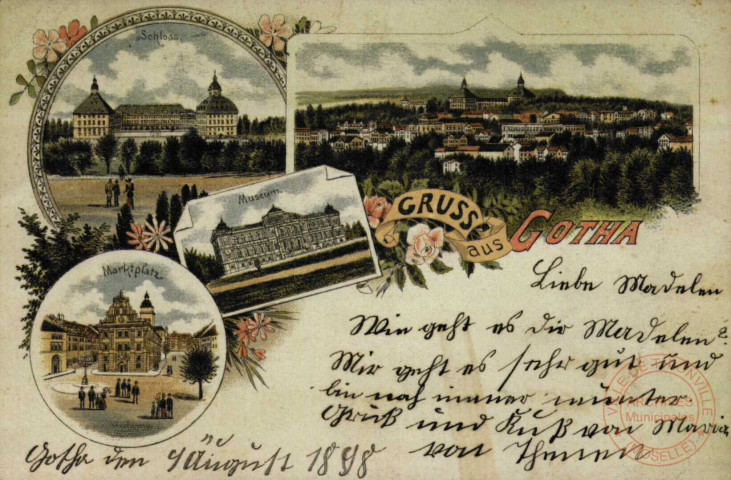 Schloss.
Museum.
Marktplatz
GRUSS
aus
GOTHA
Liebe Madelen
Wie geht es dir Madelen?
Mir geht es sehr gut und
bin noch immer munter.
Gruß und Kuß von Maria
von Thenen
Gotha den August 1898
VILLE DE THIONVILLE
Municipales
(MOSELLE)